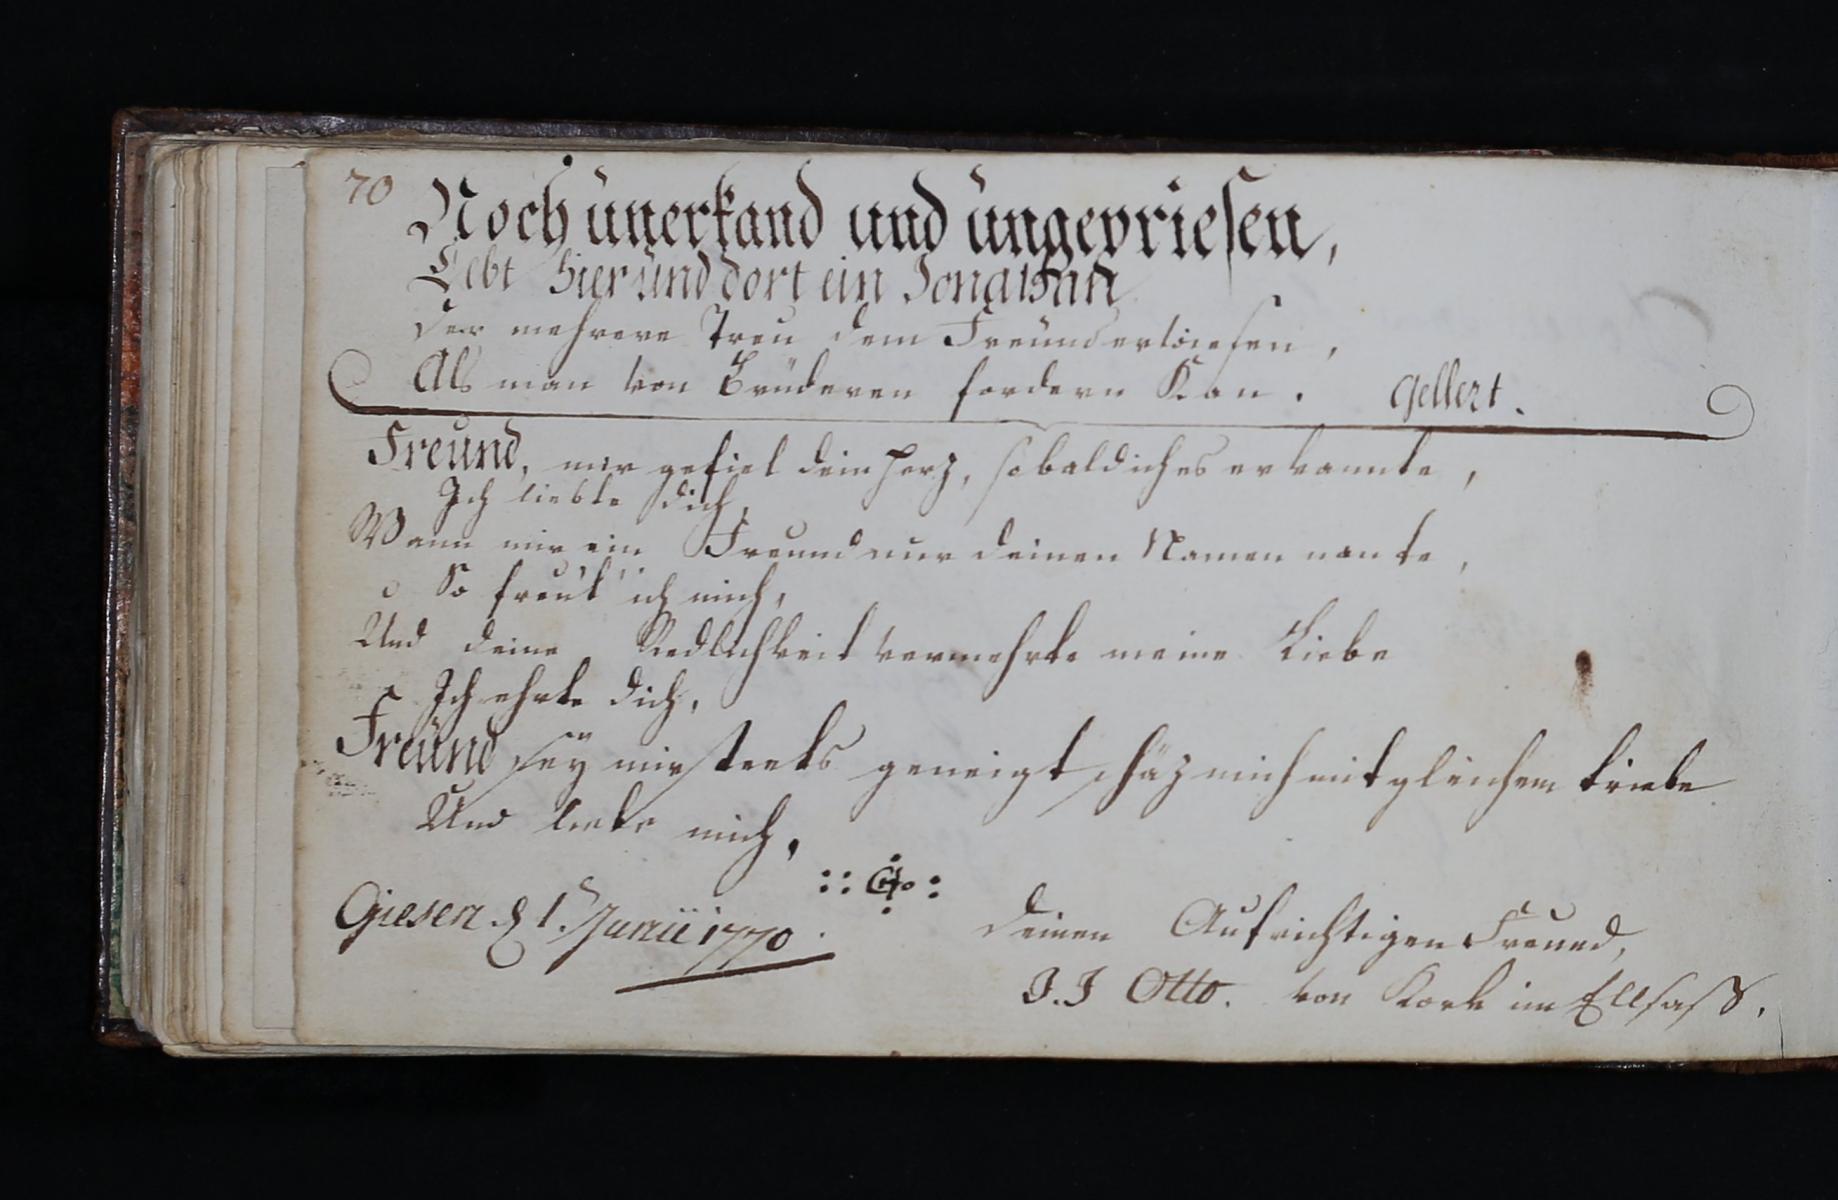 70
Noch unerkand und ungepriesen,
Lebt hier und dort ein Jonathan
Der mehrere Treu dem Freund erwiesen,
Als man von Brüderen fordern Kan. Gellert.
Freund, mir gefiel dein Herz, sobald ich es erkannte,
Ich liebte dich,
Wann mir ein Freund nur deinen Namen nante,
So freut' ich mich,
Und deine Redlichkeit vermehrte meine Liebe
Ich ehrte dich,
Freund seÿ mir steets geneigt schäz mich mit gleichem triebe
Und liebe mich,
Giesen d 1. Junii 1770.
Deinen Aufrichtigen Freund,
J. J Otto. von Kork im Ellsaß.